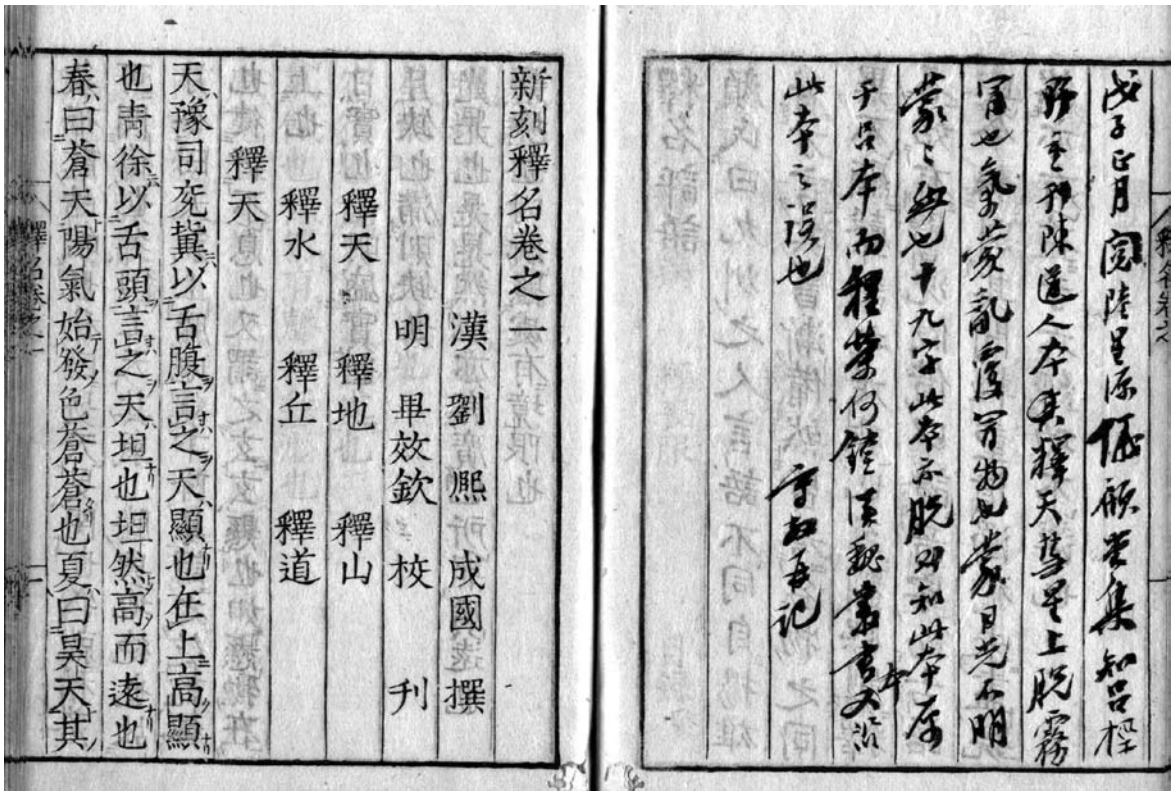 戊子正月閱陸星源儀顧堂集知呂涇
野重刊陳道人本其釋天彗星上脫霧
冒也氣蒙亂覆冒物也蒙日光不明
蒙〻然也十九字此本亦脫則知此本原
于呂本而程榮何鏜漢魏叢書本又沿
此本之誤也
守敬再記
新刻釋名卷之一
漢 劉熙 成國 撰
明 畢效欽 校 刊
釋天 釋地 釋山
釋水 釋丘 釋道
釋天
天豫司兗冀以舌腹言之天顯也在上高顯
也青徐以舌頭言之天坦也坦然高而遠也
春曰蒼天陽氣始發色蒼蒼也夏曰昊天其
釋名卷之一